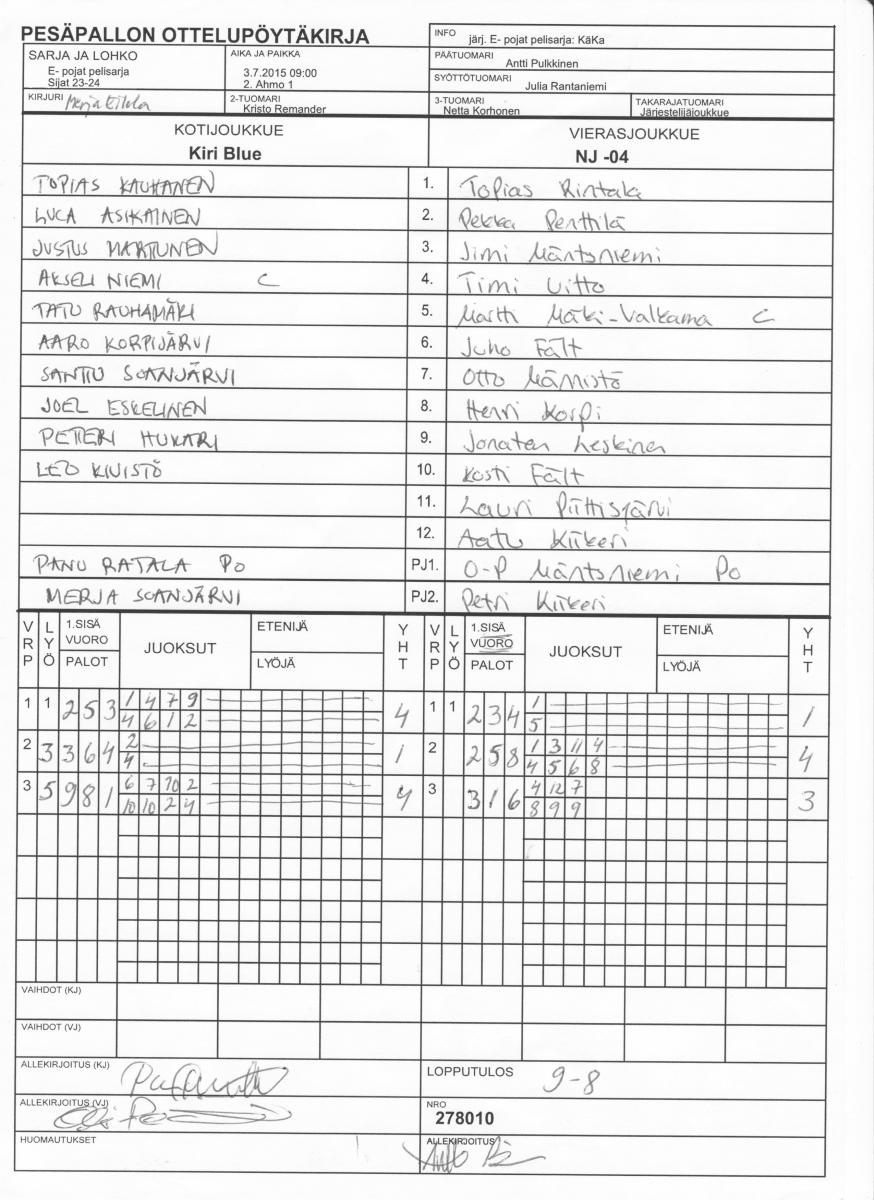 PESÄPALLON OTTELUPÖYTÄKIRJA
INFO järj. E- pojat pelisarja: KäKa
SARJA JA LOHKO
E- pojat pelisarja
Sijat 23-24
AIKA JA PAIKKA
3.7.2015 09:00
2. Ahmo 1
PÄÄTUOMARI Antti Pulkkinen
SYÖTTÖTUOMARI Julia Rantaniemi
KIRJURI Merja
2-TUOMARI
Kristo Remander
3-TUOMARI
Netta Korhonen
TAKARAJATUOMARI
Järjestelijäjoukkue
KOTIJOUKKUE VIERASJOUKKUE
Kiri Blue NJ -04
TOPIAS KAUHANEN 1. Topias Rintala
LUCA ASIKAINEN 2. Pekka Penttilä
JUSTUS 3. Jimi Mäntsniemi
AKSELI NIEMI C 4. Timi Uitto
TATU RAUHAMÄKI 5. Martti Mäki-Valkama C
AARO KORPIJÄRVI 6. Juho Fält
SANTTU SOANJÄRVI 7. Otto Männistö
JOEL ESKELINEN 8. Henri Korpi
PETTERI HUKARI 9. Jonatan Leskinen
LEO KIVISTÖ 10. Kosti Fält
11. Lauri Piittisjärvi
12. Aatu Kiikeri
PANU RATALA PO PJ1. O-P Mäntsniemi PO
MERJA SOANJÄRVI PJ2. Petri Kiikeri
VRP LYÖ 1.SISÄ VUORO PALOT JUOKSUT ETENIJÄ LYÖJÄ YHT VRP LYÖ 1.SISÄ VUORO PALOT JUOKSUT ETENIJÄ LYÖJÄ YHT
1 1 2 5 3 1 4 7 9 4 1 1 2 3 4 1 1
4 6 1 2 5
2 3 3 6 4 2 1 2 2 5 8 1 3 11 4 4
4 4 5 6 8
3 5 9 8 1 6 7 10 2 4 3 3 1 6 4 12 7 3
10 10 2 4 8 9 9
VAIHDOT (KJ)
VAIHDOT (VJ)
ALLEKIRJOITUS (KJ)
LOPPUTULOS 9-8
ALLEKIRJOITUS (VJ)
NRO
278010
HUOMAUTUKSET
ALLEKIRJOITUS